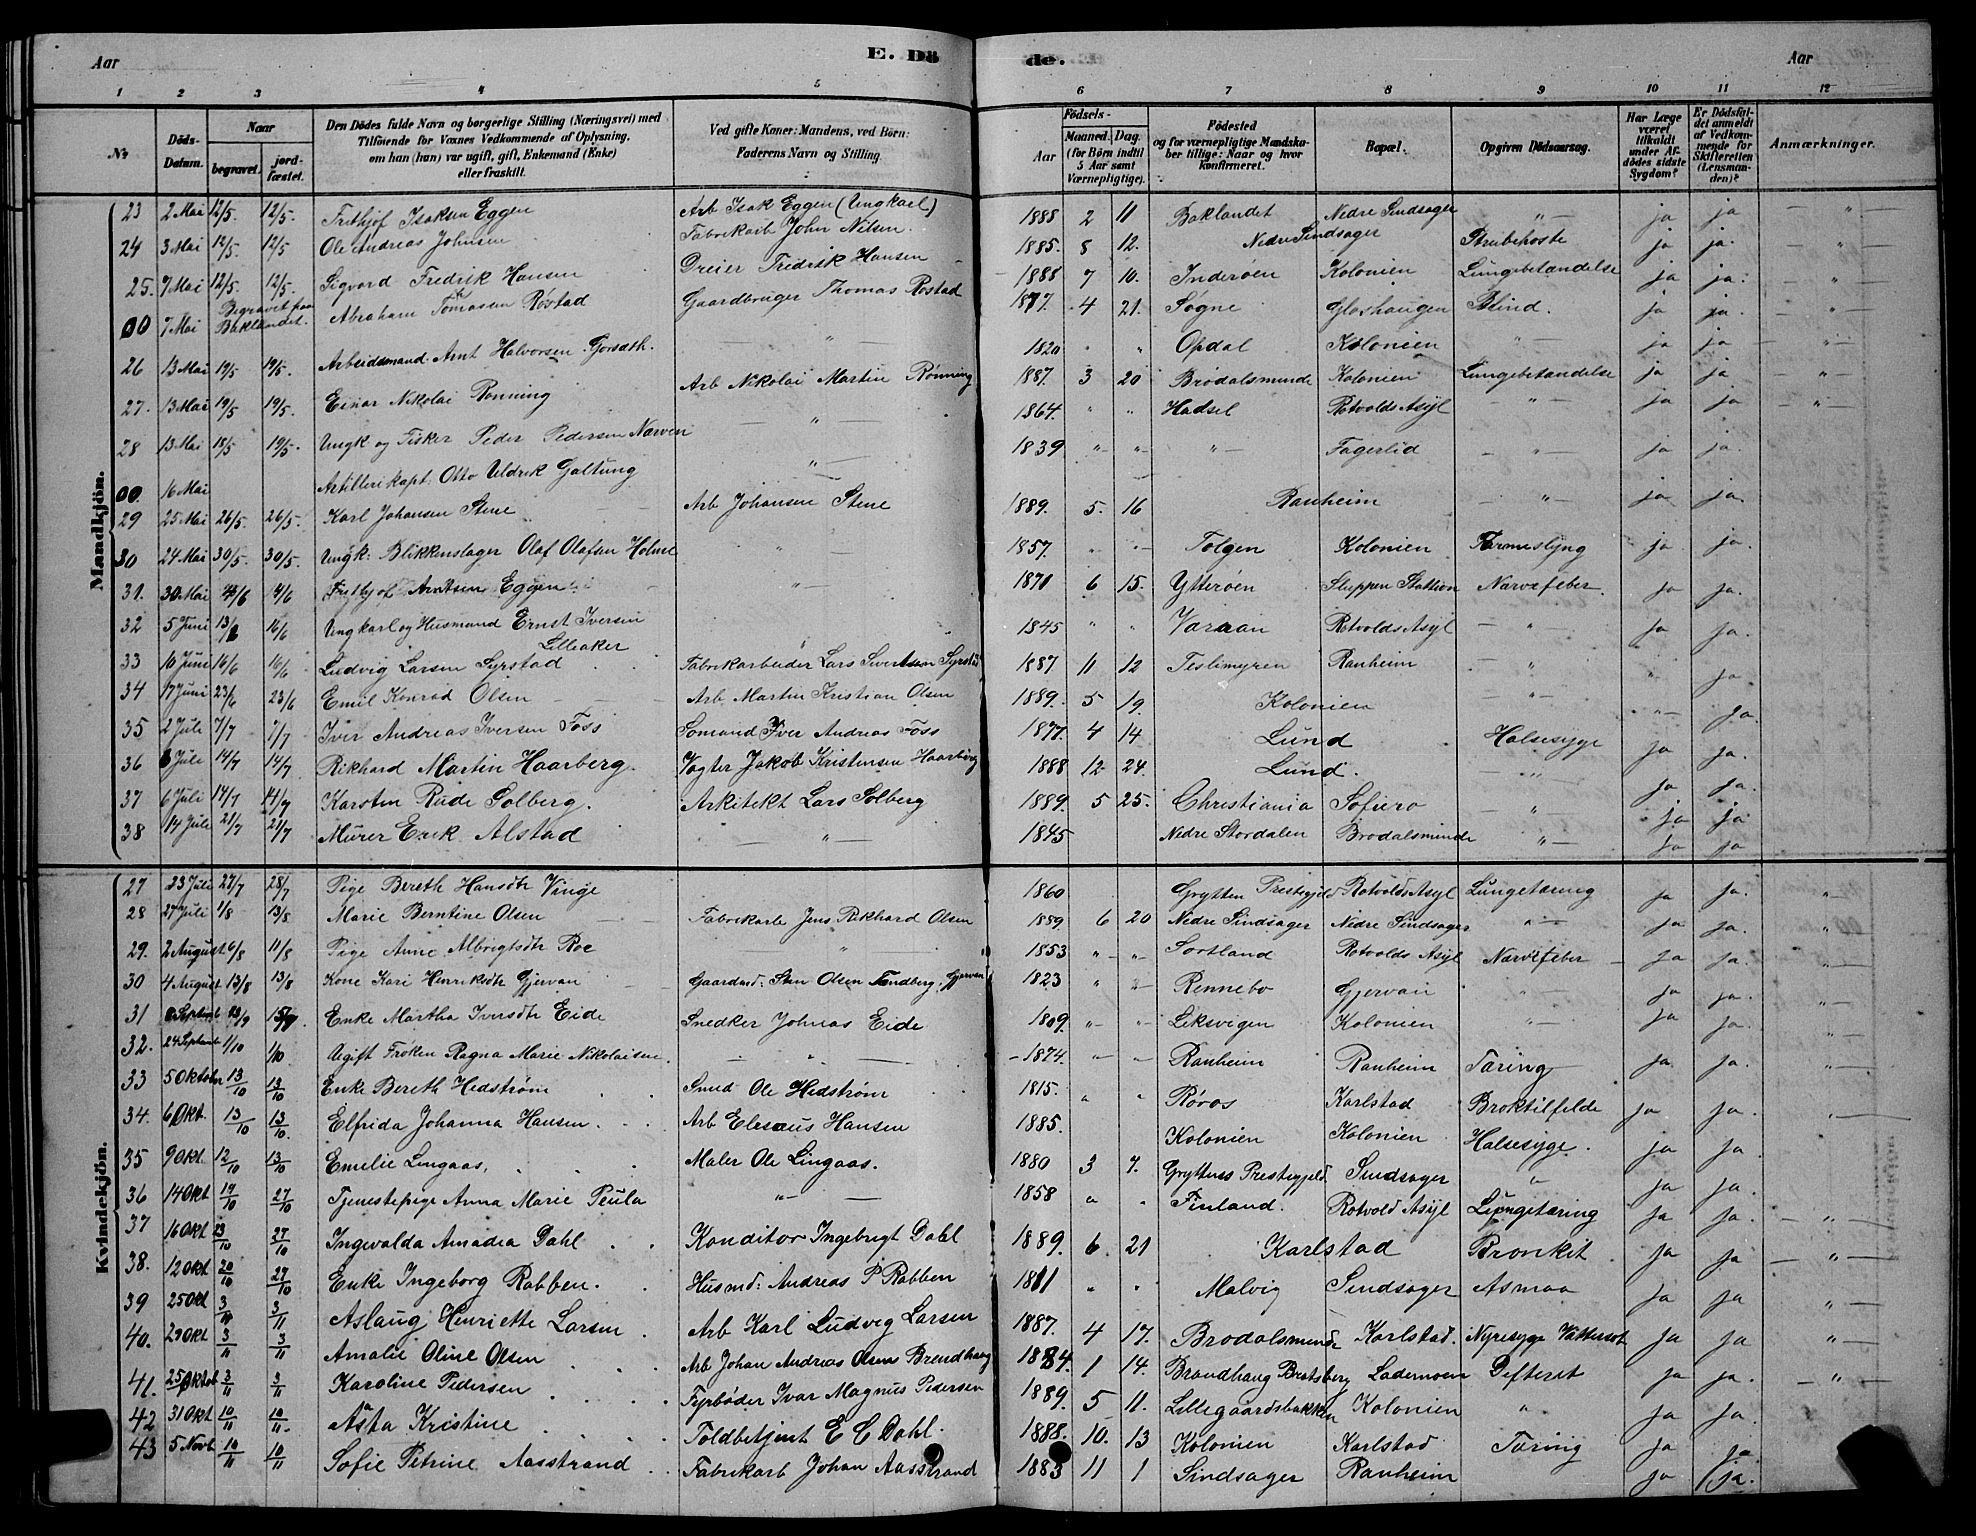 Aar
E. Dö
de.
Aar
1 2 3 4 5 6 7 8 9 10 11 12
No
Döds-Datum.
Naar
begravet.
jord-fæstet.
Den Dödes fulde Navn og borgerlige Stilling (Næringsvei) med Tilföiende for Voxnes Vedkommende af Oplysning, om han (hun) var ugift, gift, Enkemand (Enke) eller fraskilt.
Ved gifte Koner: Mandens, ved Börn: Faderens Navn og Stilling.
Födsels-
Aar
Maaned. Dag.
(for Börn indtil 5 Aar samt Værnepligtige).
Födested og for værnepligtige Mandska-ber tillige: Naar og hvor konfirmeret.
Bopæl.
Opgiven Dödsaarsag.
Har Læge været tilkaldt under Af-dödes sidste Sygdom?
Er Dödsfal-det anmeldt af Vedkom-mende for Skifteretten (Lensman-den)?
Anmærkninger.
Mandkjön.
23 2 Mai 12/5. 12/5. Frithjof Isaksen Eggen Arb Isak Eggen (Ungkarl) 1888 2 11 Baklandet Nedre Sindsager " ja ja "
24 3 Mai 12/5. 12/5 Ole Andreas Johnsen Fabrikarb John Nilsen. 1885. 8 12. Nedre Sindsager Strubehoste ja ja. "
25. 7 Mai 12/5. 12/5. Sigvard Fredrik Hansen Dreier Fredrik Hansen 1888 7 10. Inderøen Kolonien Lungebetændelse ja ja. "
00 7 Mai Begravet paa Baklandet. Abraham Tomassen Røstad Gaardbruger Thomas Rostad 1877. 4 21. Søgne Gløshaugen Blind. ja ja "
26 13 Mai 19/5 19/5. Arbeidsmand. Arnt Halvorsen Gorsæth. " 1820 " " Opdal Kolonien " ja ja "
27. 13 Mai 19/5 19/5. Einar Nikolai Rønning Arb Nikolai Martin Rønning 1887. 3 20 Brødalsmunde Kolonien Lungebetændelse ja ja "
28 13 Mai 18/5 19/5. Ungk. og Fisker Peder Pedersen Narven " 1864. " " Hadsel Rotvolds Asyl " ja ja "
00. 16 Mai Artillerikapt: Otto Uldrik Galtung " 1839 " " " Fagerlid " ja ja.
29 25 Mai 26/5. 26/5. Karl Johansen Stene Arb Johansen Stene 1889. 5. 16 Ranheim " ja ja.
30 24 Mai 30/5 30/5. Ungk: Blikkenslager Olaf Olafsen Holme " 1857. " " Tolgen Kolonien ja ja.
31. 30 Mai 4/6 Frithjof Arntsen Eggen " 1871 6 15. Ytterøen Sluppen Stattion Nærvefeber. ja ja.
32 5 Juni 16/6 Ungkarl og Husmand Ernst Iversen Lilleaker " 1845 " " Rotvolds Asyl " ja ja.
33 10 Juni 16/6 16/6 Ludvig Larsen Syrstad Fabrikarbeider Lars Sivertsen 1887 11 12 Teslimyren Ranheim " " ja.
34 17 Juni 23/6 23/6 Emil Konrad Olsen Arb. Martin Kristian Olsen 1889. 5 19. Kolonien " "
35 2 Juli 7/7 7/7 Iver Andreas Iversen Foss Sømand Iver Andreas Foss 1877. 4 14 Lund Halsesyge ja ja.
36 Juli 14/7 14/7 Rikhard Martin Haarberg. Vagter Jakob Kristensen Haarberg 1888 12 24. Lund. " ja ja.
37 6 Juli 14/7 14/7 Karsten Rude Solberg. Arkitekt Lars Solberg 1889. 5 25. Christiania Sofiero " ja ja
38 14 Juli 21/7 21/7 Murer Erik Alstad " 1845 Nedre Stordalen Brodalsmunde " ja ja
Kvindekjön.
27 23 Juli 27/7 28/7 Pige Bereth Hansdtr Vinge 1860 Grytten Præstegjeld Rotvolds Asyl Lungetæring ja ja. "
28 27 Juli 1/8 13/8 Marie Berntine Olsen Fabrikarb Jens Rikhard Olsen 1889 6 20 Nedre Sindsager Nedre Sindsager " ja ja. "
29. 2 August 6/8 11/8 Pige Anne Albrigtsdtr Roe " 1853 " " Sortland Rotvolds Asyl Nærvefeber ja ja. "
30 4 August 13/8 13/8 Kone Kari Henriksdtr Gjervan Gaardmd: Sten Olsen Gjervan 1823 " " Rennebo Gjervan " ja ja. "
31 Septemb Enke Martha Iversdtr Eide Snedker Johnas Eide 1809. " " Leksvigen Kolonien " ja ja. "
32. 24 Septemb 1/10 1/10 Ugift Frøken Ragna Marie Nikolaisen. " 1874. " " Ranheim Ranheim Tæring ja ja. "
33 5 Oktober 13/10 13/10 Enke Bereth Hedstrøm Smed Ole Hedstrøm 1815. " " Røros Karlstad Broktilfelde ja ja. "
34. 6 Okt. 13/10 13/10. Elfrida Johanna Hansen. Arb Elesæus Hansen 1885. Kolonien Kolonien Halsesyge. ja ja.
35 9 Okt. 12/10 13/10 Emelie Lingaas. Maler Ole Lingaas. 1880 3 7. Gryttens Præstegjeld Sindsager " ja ja.
36 14 Okt 19/10 27/10 Tjenestepige Anna Marie Peula " 1858 " " Finland. Rotvold Asyl Lungetæring ja ja. "
37 16 Okt 23/10 27/10 Ingevalda Amadea Dahl Konditor Ingebrigt Dahl 1889. 6. 21 Karlstad Bronkit ja ja. "
38. 12 Okt 20/10 27/10 Enke Ingeborg Rabben. Husmd: Andreas P Rabben 1811 " " Malvig Sindsager Asmaa ja ja "
39 25 Okt 3/11 3/11 Aslaug Henriette Larsen Arb Karl Ludvig Larsen 1887. 4 17. Brodalsmunde Karlstad. Nyresyge Vattersot ja ja "
40. 29 Okt 3/11 3/11 Amalie Oline Olsen Arb Johan Andreas Olsen Brendhaug 1884. 1 14. Brandhaug Bratsberg Lademoen Difterit ja ja. "
41. 25 Oktob 3/11 3/11 Karoline Pedersen Fyrbøder Ivar Magnus Pedersen 1889. 5 11. Lillegaardsbakken Kolonien " ja ja.
42 31 Okt 10/11 10/11. Asta Kristine Toldbetjent E C Dahl. 1888. 10. 13 Kolonien Karlstad Tæring ja ja
43 5 Novb 10/11 10/11 Sofie Petrine Aasstrand Fabrikarb Johan Aasstrand 1883 11 1 Sindsager Ranheim ja ja.